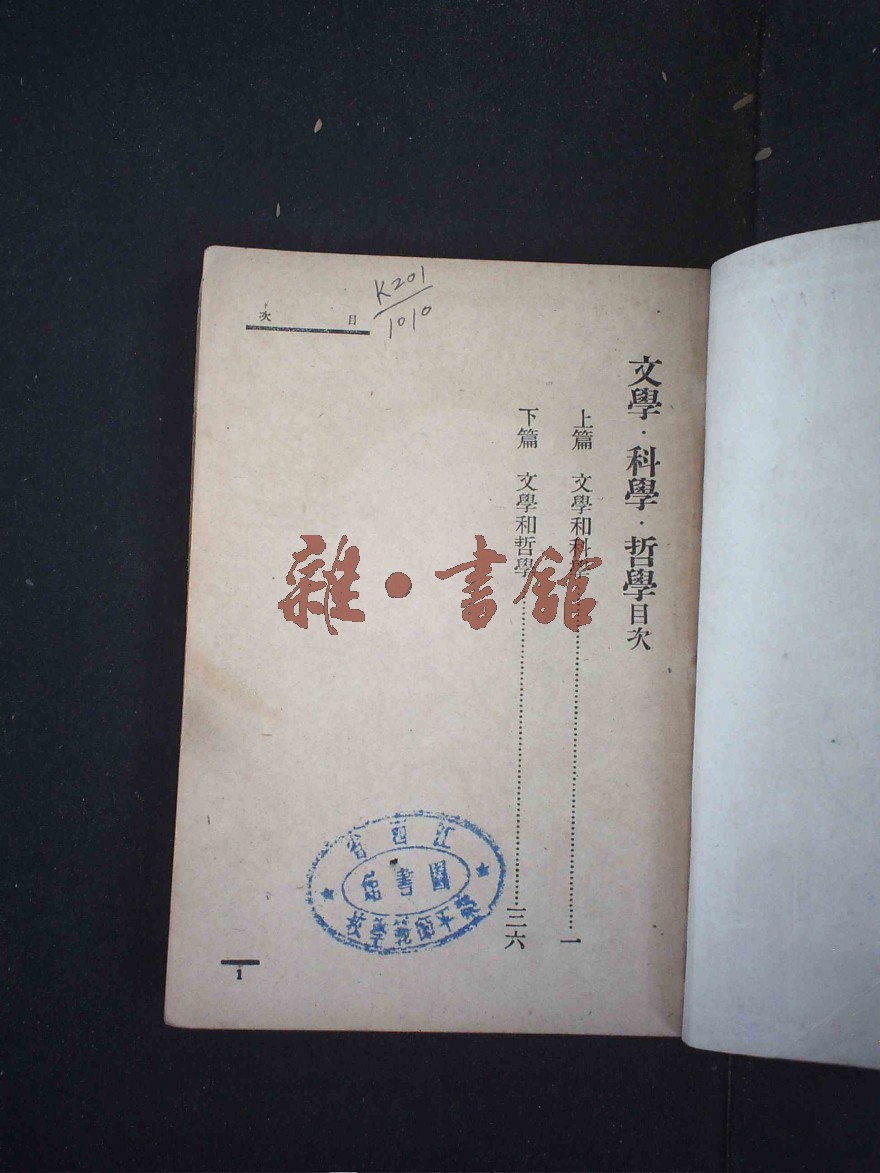 目次
K201
1010
文學·科學·哲學目次
上篇 文學和科學……一
下篇 文學和哲學……三六
雜·書館
江西省
圖書館
師範學校
1